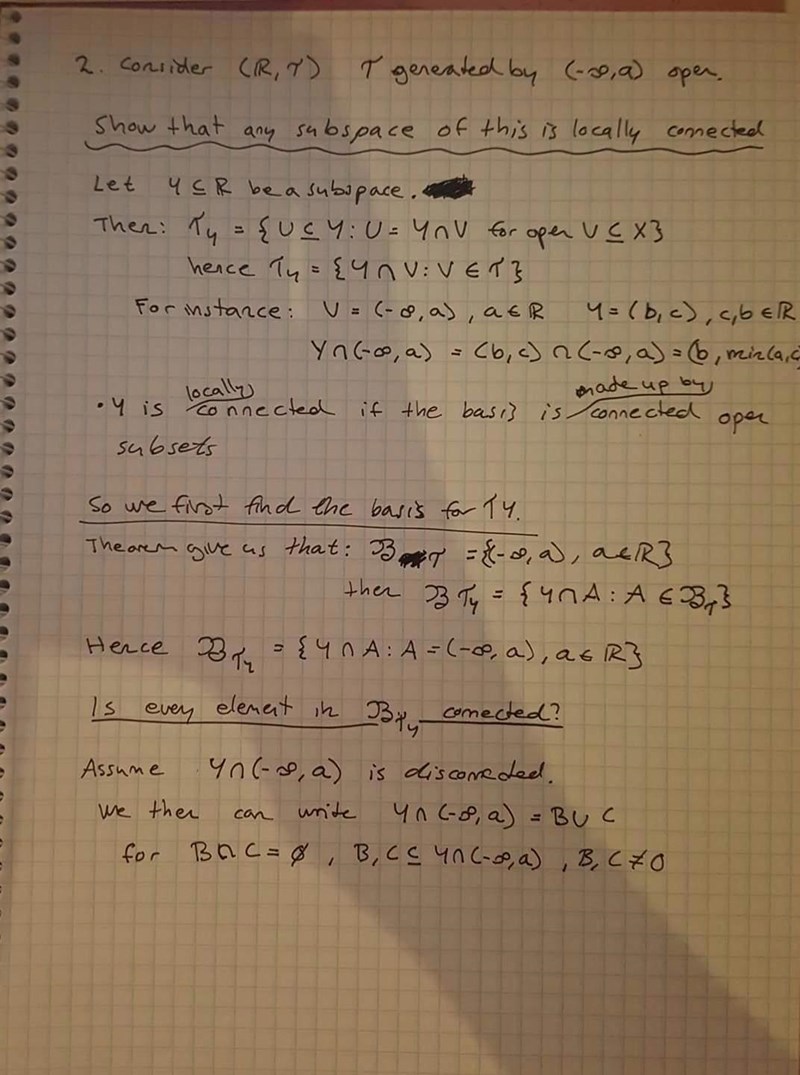 2. Consider (ℝ, τ) τ generated by (-∞, a) open.
Show that any subspace of this is locally connected
Let Y ⊆ ℝ be a subspace.
Then: τ_Y = {U ⊆ Y : U = Y ∩ V for open V ⊆ X}
hence τ_Y = {Y ∩ V : V ∈ τ}
For instance: V = (-∞, a), a ∈ ℝ Y = (b, c), c, b ∈ ℝ
Y ∩ (-∞, a) = (b, c) ∩ (-∞, a) = (b, min(a, c
• Y is locally connected if the basis is made up by connected open
subsets
So we first find the basis for τ_Y.
Theorem give us that: ℬ_τ = {(-∞, a), a ∈ ℝ}
then ℬ_τ_Y = {Y ∩ A : A ∈ ℬ_τ}
Hence ℬ_τ_Y = {Y ∩ A : A = (-∞, a), a ∈ ℝ}
Is every element in ℬ_τ_Y connected?
Assume Y ∩ (-∞, a) is disconnected.
We then can write Y ∩ (-∞, a) = B ∪ C
for B ∩ C = ∅, B, C ⊆ Y ∩ (-∞, a), B, C ≠ 0